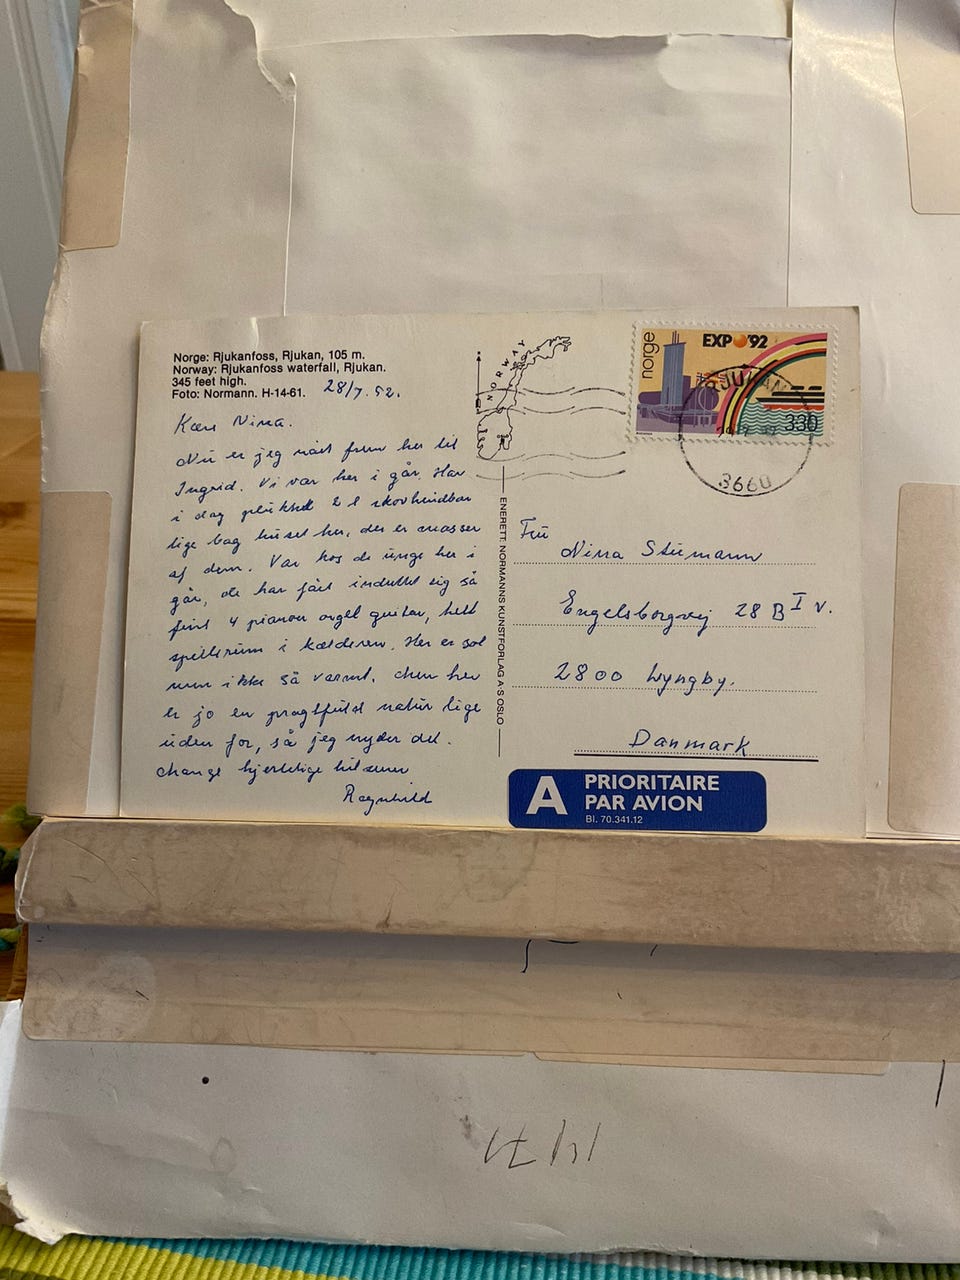 Norge: Rjukanfoss, Rjukan, 105 m.
Norway: Rjukanfoss waterfall, Rjukan.
345 feet high.
Foto: Normann. H-14-61.
28/7. 92.
Kære Nina.
Nu er jeg nået frem her til
Ingrid. Vi var her i går. Har
i dag plukket 2 l skovhindbær
lige bag huset her, der er masser
af dem. Var hos de unge her i
går, de har fået indrettet sig så
fint 4 pianoer orgel guitar, helt
spillerum i kælderen. Her er sol
men ikke så varmt. Men her
er jo en pragtfuld natur lige
uden for, så jeg nyder det.
Mange hjertelige hilsner
Ragnhild
NORWAY
ENERETT: NORMANNS KUNSTFORLAG A·S OSLO
norge
EXPO'92
330
RJUKAN
3660
Fru
Nina Stemann
Engelsborgvej 28 B I v.
2800 Lyngby.
Danmark
A PRIORITAIRE
PAR AVION
Bl. 70.341.12